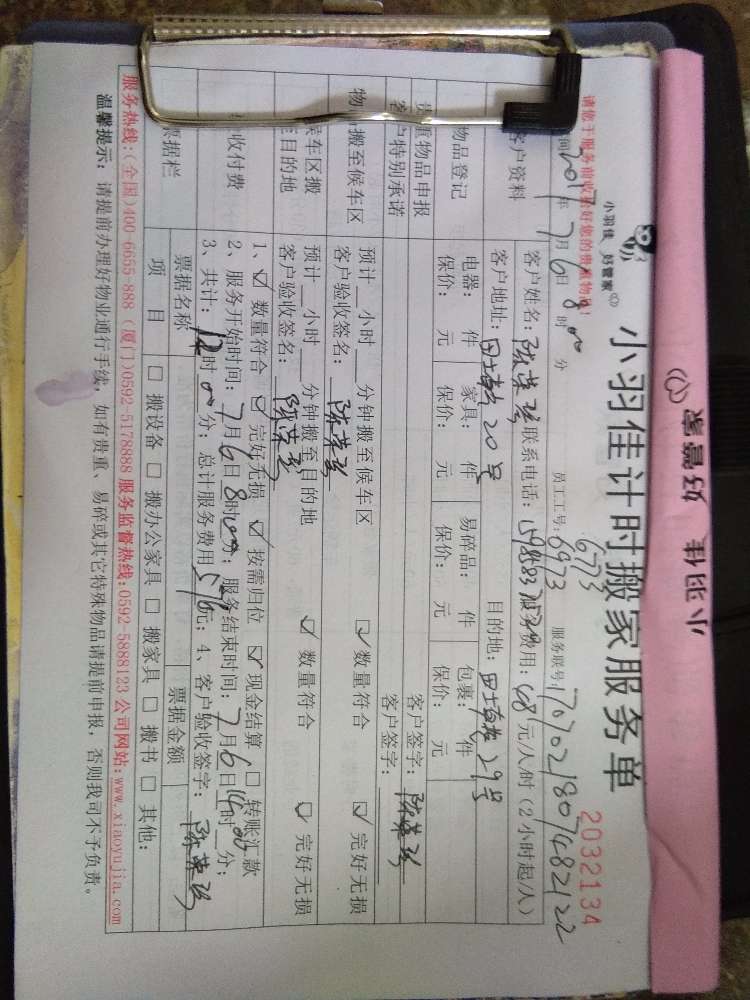 小羽佳 好管家
小羽佳 好管家
小羽佳计时搬家服务单
2032134
请您于服务前收拾好您的贵重物品!
2017年7月6日8时00分
员工工号:6973
6773
服务联号:
客户资料
客户姓名:
联系电话:
服务费用:68元/人/时(2小时起/人)
客户地址:
20号
目的地:
29号
物品登记
电器: 件 家具: 件 易碎品: 件 包裹: 件
保价: 元 保价: 元 保价: 元 保价: 元
贵重物品申报
客户签字:
客户特别承诺
客户签字:
物品搬至候车区
预计__小时__分钟搬至候车区 ☑数量符合 ☑完好无损
客户验收签名:
候车区搬至目的地
预计__小时__分钟搬至目的地 ☑数量符合 ☑完好无损
客户验收签名:
收付费
1、☑数量符合 ☑完好无损 ☑按需归位 ☑现金结算 □转账汇款
2、服务开始时间:7月6日8时00分;服务结束时间:7月6日14时00分;
3、共计:12时00分;总计服务费用 元;4、客户验收签字:
票据栏
票据名称
票据金额
项目
□搬设备 □搬办公家具 □搬家具 □搬书 □其他:
服务热线:(全国)400-6655-888 (厦门)0592-5178888 服务监督热线:0592-5888123 公司网站:www.xiaoyujia.com
温馨提示:请提前办理好物业通行手续,如有贵重、易碎或其它特殊物品请提前申报,否则我司不予负责。